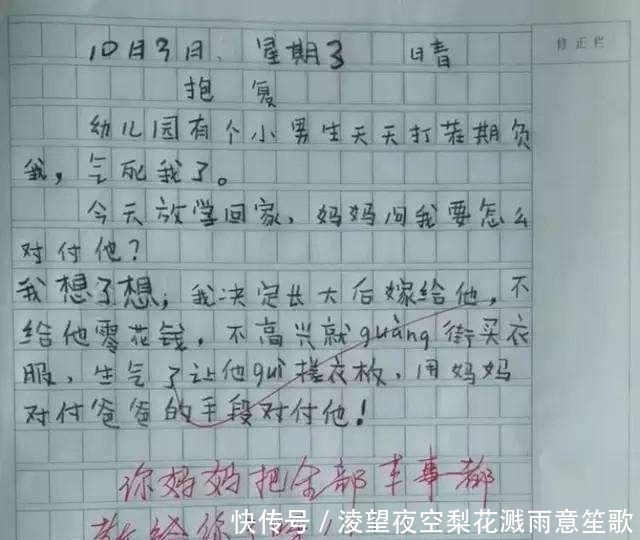 修正栏
10月3日. 星期3 晴
抱复
幼儿园有个小男生天天打茬期负
我，气死我了。
今天放学回家，妈妈问我要怎么
对付他？
我想了想，我决定长大后嫁给他，不
给他零花钱，不高兴就guàng街买衣
服、生气了让他guì搓衣板，用妈妈
对付爸爸的手段对付他！
你妈妈把全部本事都
教给你
快传号/凌望夜空梨花溅雨意笙歌